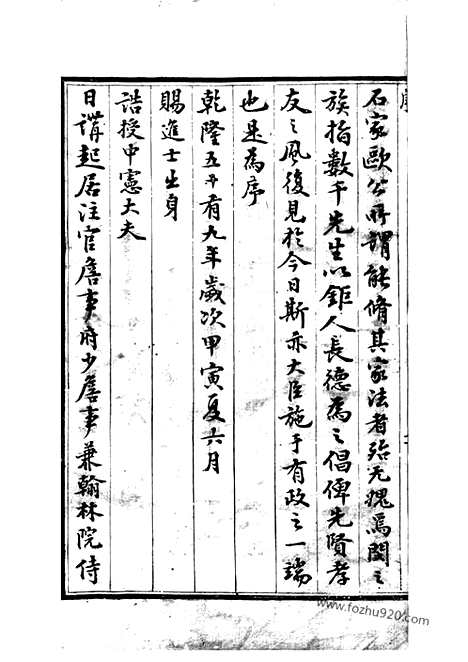 石家歐公所謂能脩其家法者殆无愧焉閔之
族指數千先生以鉅人長德為之倡俾先賢孝
友之風復見於今日斯亦大臣施于有政之一端
也是為序
乾隆五十有九年歲次甲寅夏六月
賜進士出身
誥授中憲大夫
日講起居注官詹事府少詹事兼翰林院侍
www.fozhu920.com